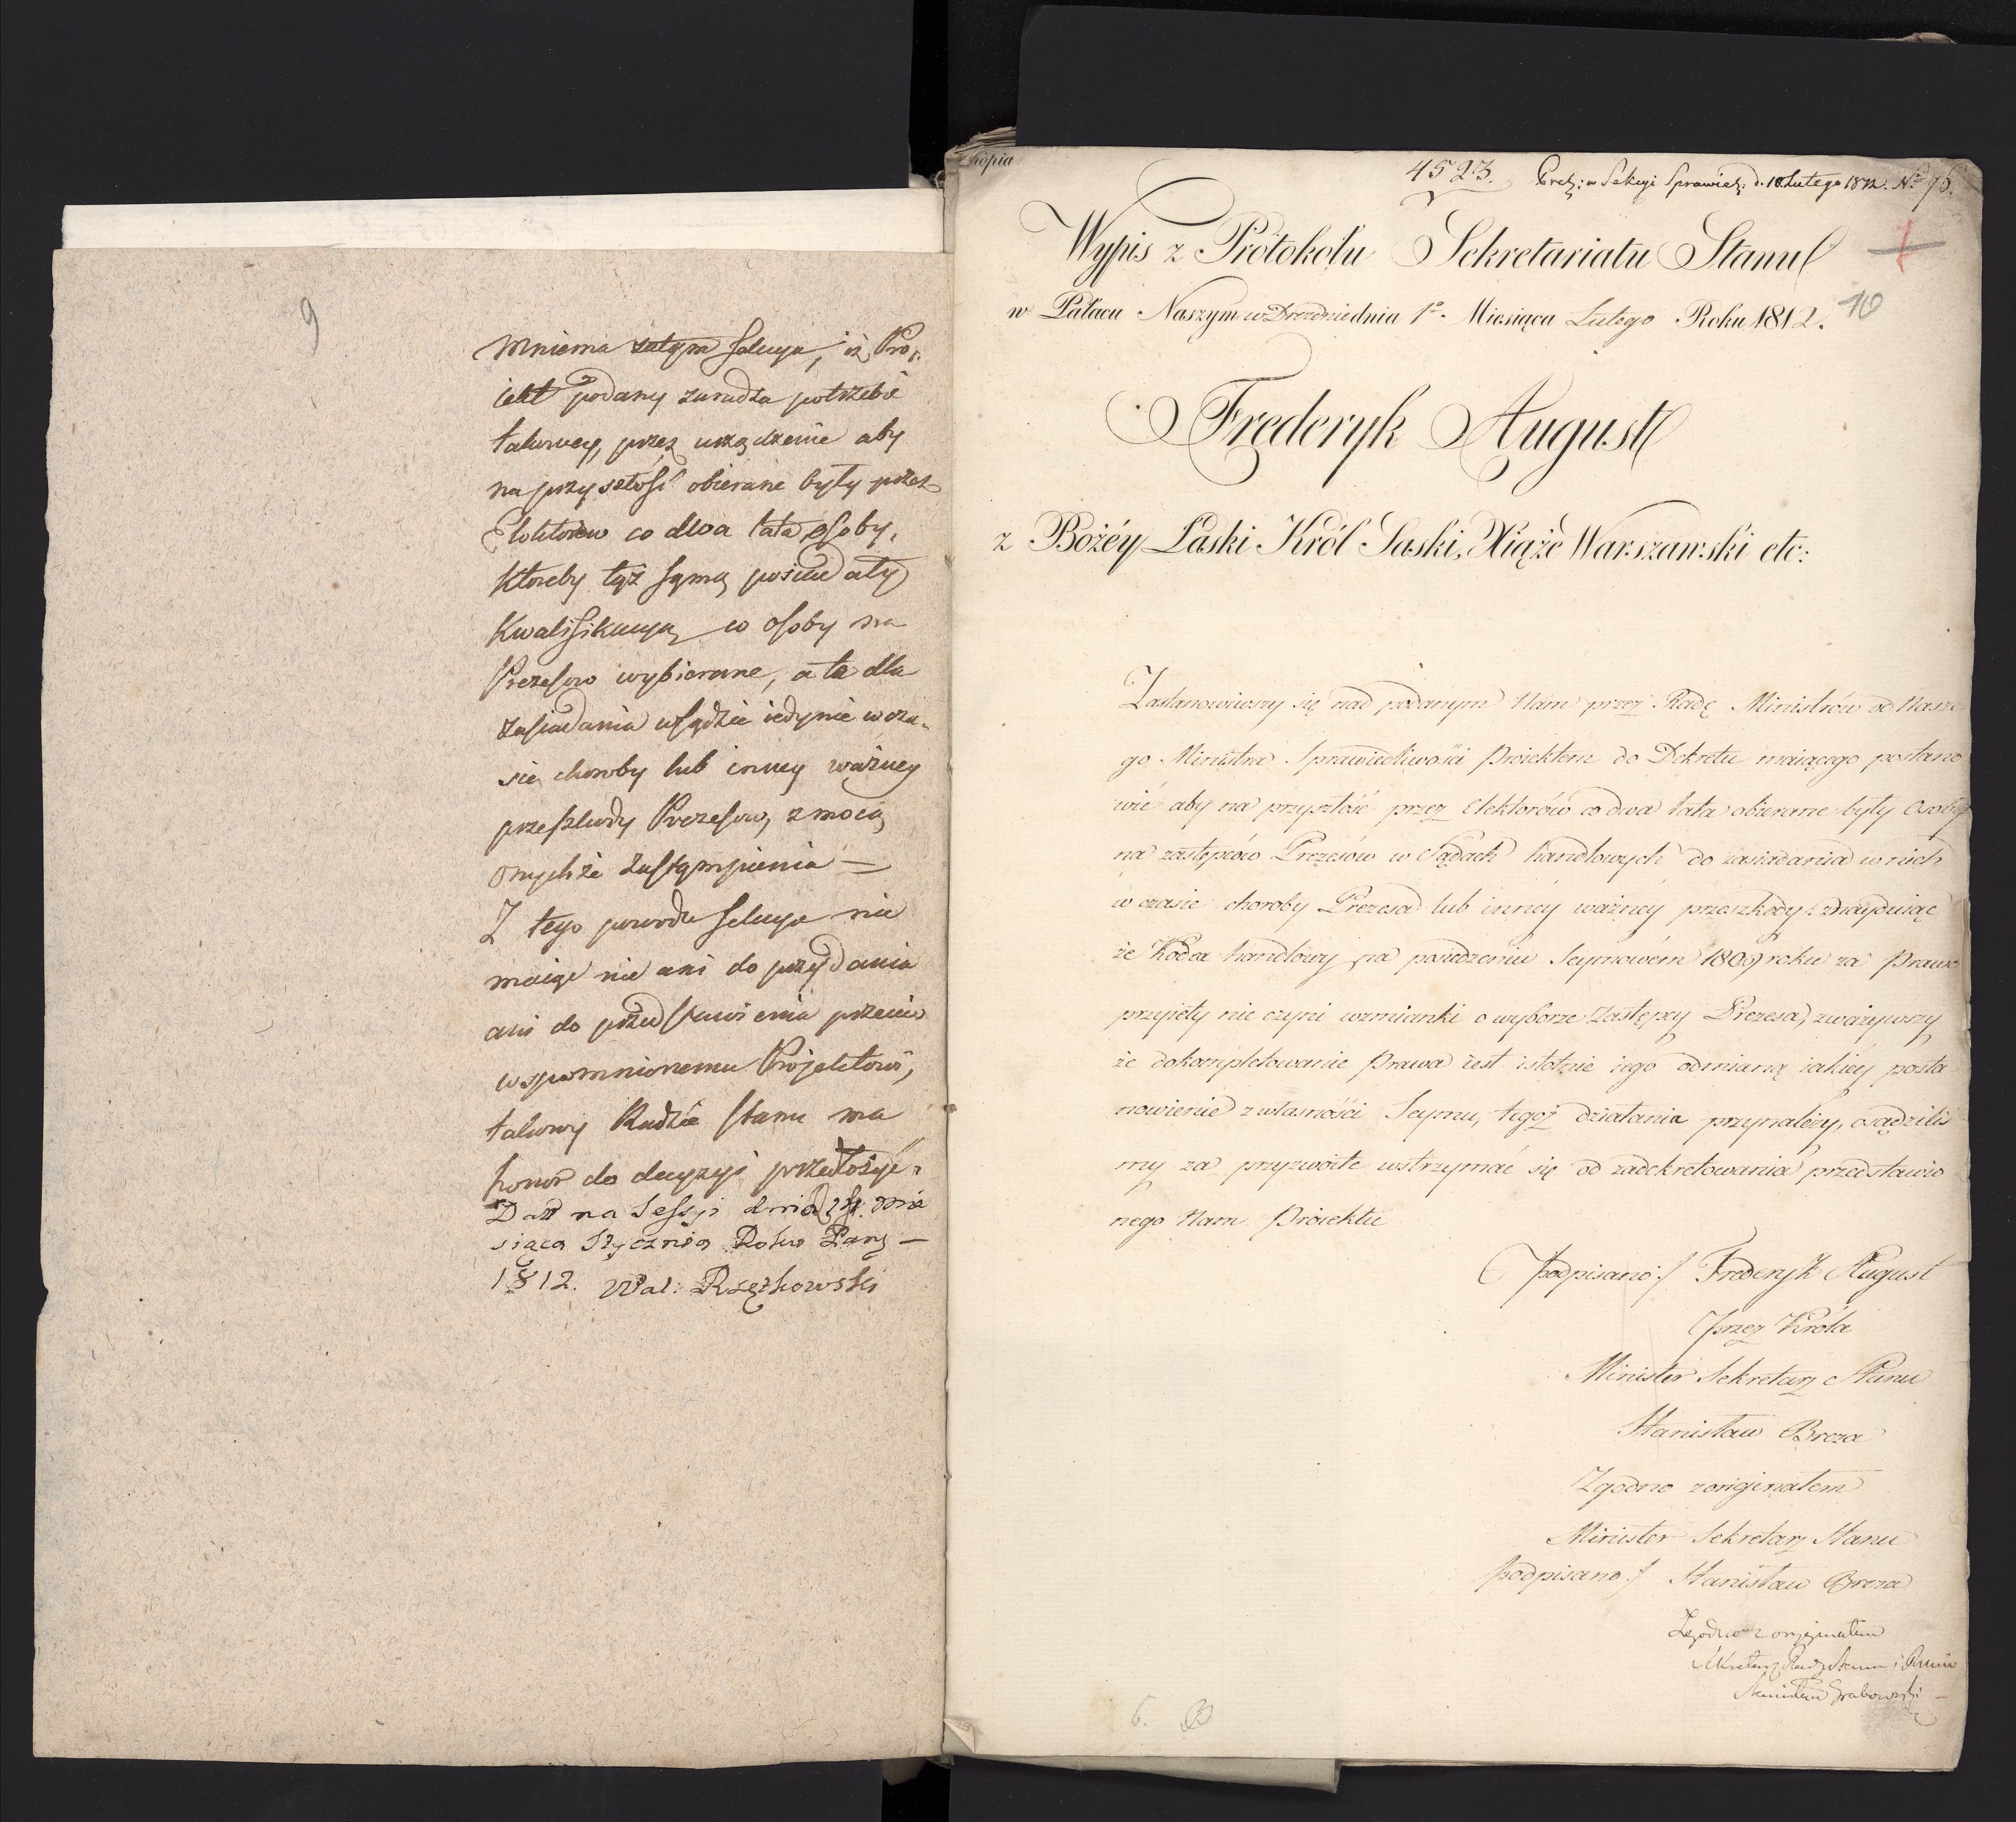 9
Mniema zatym Sekcya, iż Pro-
iekt podany zaradza potrzebie
takowey, przez urządzenie aby
na przyszłość obierane były przez
Elektorow co dwa lata osoby,
ktoreby tęż samą posiadały
Kwalifikacyą co osoby na
Prezesow wybierane, a to dla
zasiadania w sądzie iedynie w cza-
sie choroby lub inney ważney
przeszkody Prezesow, z mocą
onychże zastąmpienia —
Z tego powodu Sekcya nie
maiąc nic ani do przydania
ani do przedstawienia przeciw
wspomnionemu Projektowi,
takowy Radzie Stanu ma
honor do decyzyi przedłożyć.
Dan na Sessyi dnia 24. Mie
siąca Stycznia Roku Pańs —
1812. Wal: Rzętkowski
Kopia
4523. Prez: w Sekcyi Sprawied: d. 18. Lutego 1812. No 76.
Wypis z Protokołu Sekretariatu Stanu
w Pałacu Naszym w Dreznie dnia 1o. Miesiąca Lutego Roku 1812.
10
Frederyk August
z Bożéy Łaski Król Saski, Xiąże Warszawski etc:
Zastanowiwszy się nad podanym Nam przez Radę Ministrów od Nasze
go Ministra Sprawiedliwości Proiektem do Dekretu maiącego postano
wić aby na przyszłość przez Elektorów co dwa lata obierane były Osoby
na zastępców Prezesów w Sądach handlowych do zasiadania w nich
w czasie choroby Prezesa lub innéy ważnéy przeszkody; znayduiąc
że Kodex handlowy na posiedzeniu Seymowém 1809 roku za Prawo
przyięty nie czyni wzmianki o wyborze Zastępcy Prezesa, zważywszy
że dokompletowanie Prawa iest istotnie iego odmianą iakiéy posta
nowienie z własności Seymu, tegoż działania przynależy, osądziliś
my za przyzwoite wstrzymać się od zadekretowania przedstawio
nego Nam Proiektu
podpisano :/ Frederyk August
przez Króla
Minister Sekretarz Stanu
Stanisław Breza
Zgodno z originałem
Minister Sekretarz Stanu
podpisano :/ Stanisław Breza
Zgodno z oryginałem
Sekretarz Rady Stanu i Minis
Stanisław Grabowski
6.